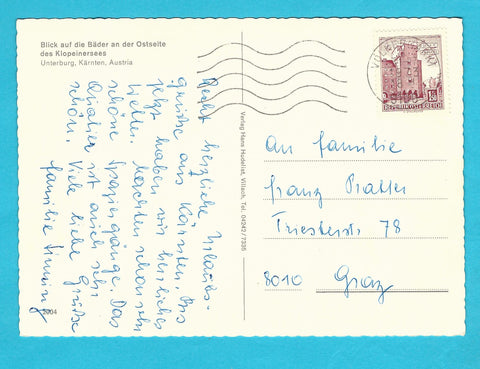 Blick auf die Bäder an der Ostseite
des Klopeinersees
Unterburg, Kärnten, Austria
Recht herzliche Urlaubs-
grüsse aus Kärnten. Bis
jetzt haben wir herrliches
Wetter. Machten schon sehr
schöne Spaziergänge. Das
Quatier ist auch sehr
schön. Viele liebe Grüße
Familie
5004
Verlag Hans Hudelist, Villach, Tel. 04242/7335
REPUBLIK ÖSTERREICH
An Familie
Franz
Triesterstr 78
8010 Graz